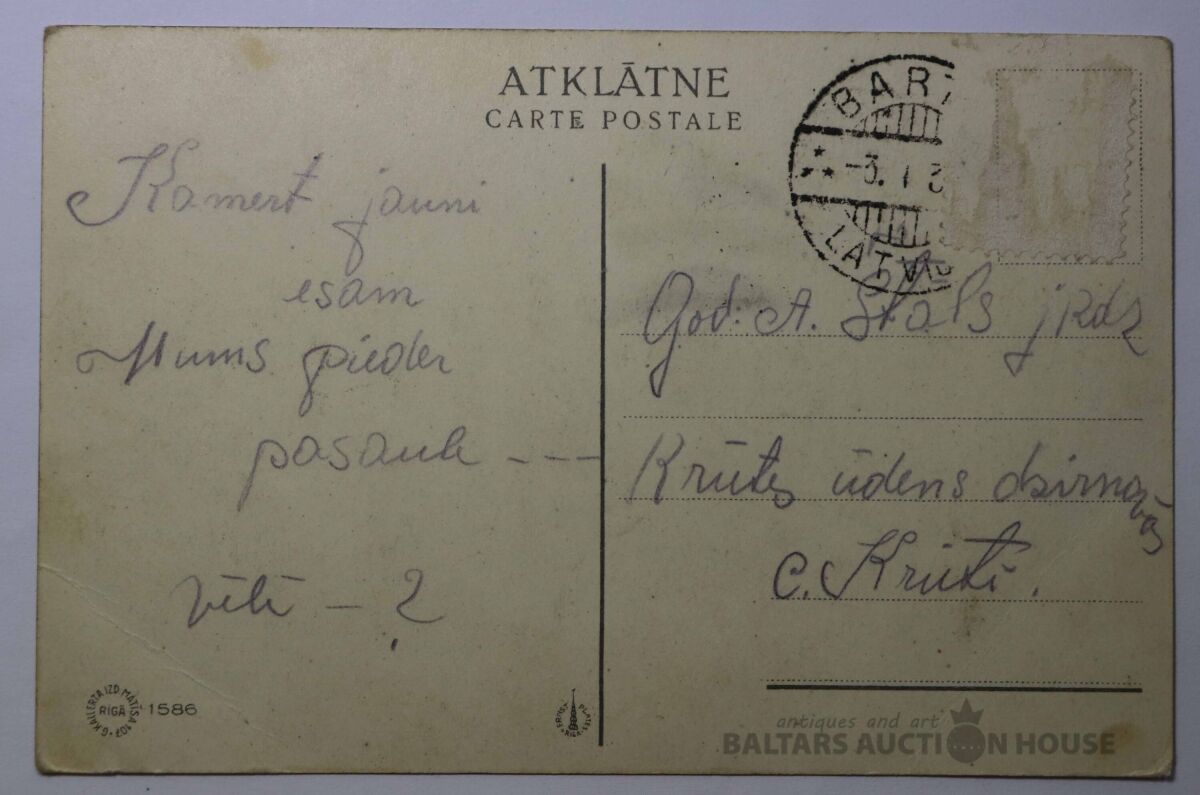 ATKLĀTNE
CARTE POSTALE
BAR
-3. 1 3
LATVI
Kamēr jauni
esam
Mums pieder
pasaule ---
vēlē - ?
God. A. Stāls jkdz
Krūtes ūdens dzirnavās
c. Krūtē.
G. KAILERTA IZD. MATĪSA 107
RĪGĀ
1586
ERNST PLATES
RIGA
antiques and art
BALTARS AUCTION HOUSE